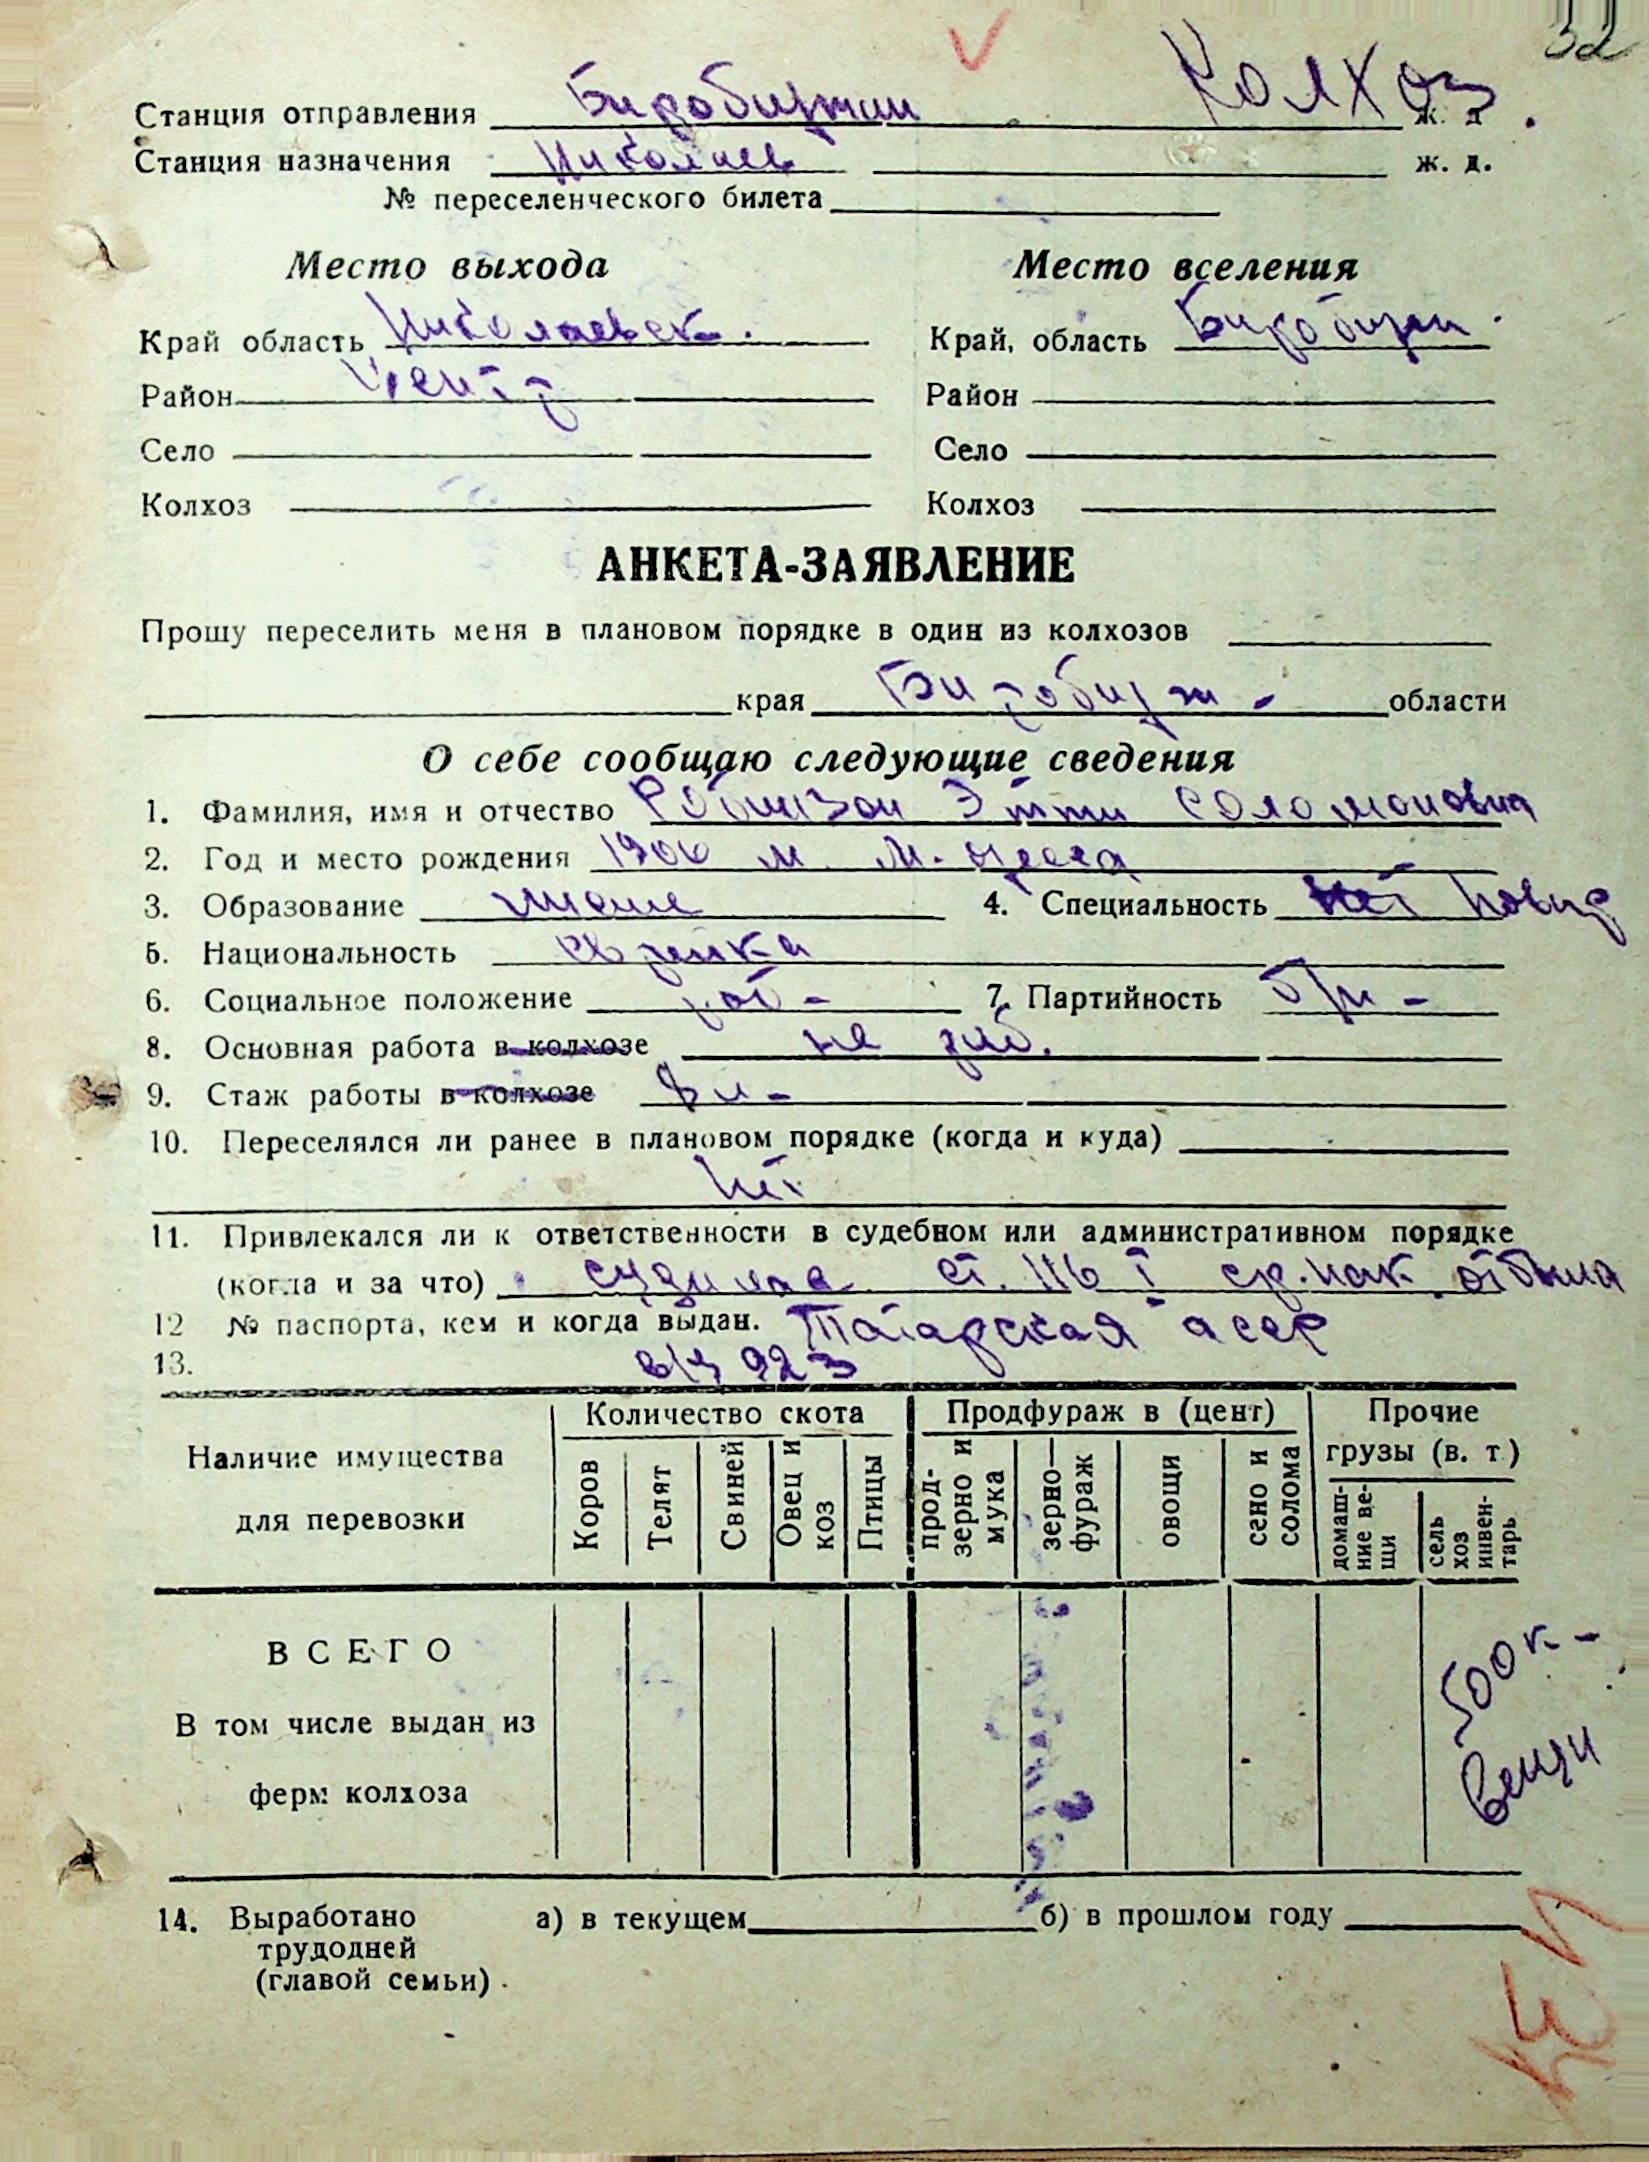 32
Колхоз
Станция отправления Биробиджан ж. д.
Станция назначения Николаев ж. д.
№ переселенческого билета
Место выхода Место вселения
Край область Николаевск. Край, область Биробиджан
Район Центр Район
Село Село
Колхоз Колхоз
АНКЕТА-ЗАЯВЛЕНИЕ
Прошу переселить меня в плановом порядке в один из колхозов
края Биробидж - области
О себе сообщаю следующие сведения
1. Фамилия, имя и отчество Робинзон Этти Соломоновна
2. Год и место рождения 1906 м. Одесса
3. Образование 4. Специальность нет Повар
5. Национальность еврейка
6. Социальное положение раб - 7. Партийность б/п -
8. Основная работа в колхозе не раб.
9. Стаж работы в колхозе
10. Переселялся ли ранее в плановом порядке (когда и куда)
нет
11. Привлекался ли к ответственности в судебном или административном порядке
(когда и за что) судилась ст. 116 I ср. нак. отбыла
12 № паспорта, кем и когда выдан. Татарская асср
13. 923
Наличие имущества для перевозки
Количество скота Продфураж в (цент) Прочие грузы (в. т.)
Коров Телят Свиней Овец и коз Птицы прод-зерно и мука зерно—фураж овощи сено и солома домаш-ние ве-щи сель хоз инвен-тарь
ВСЕГО
500 к -
вещи
В том числе выдан из
ферм колхоза
14. Выработано а) в текущем б) в прошлом году
трудодней
(главой семьи)